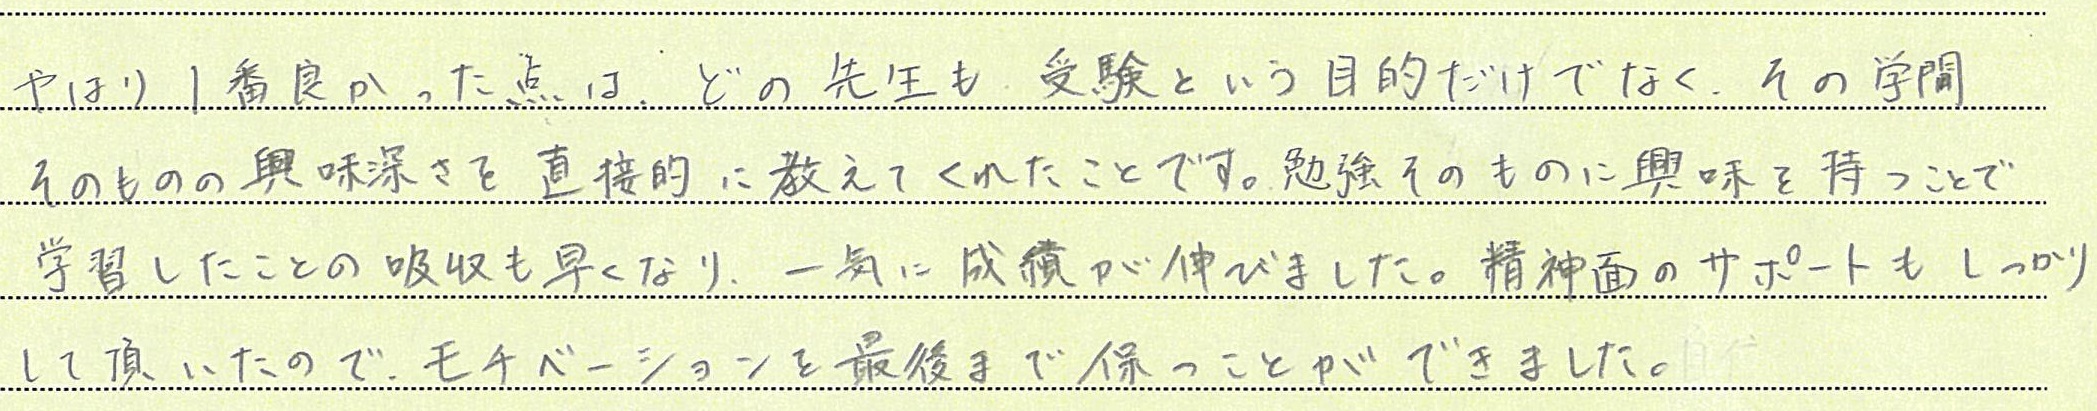 やはり1番良かった点は、どの先生も、受験という目的だけでなく、その学問
そのものの興味深さを直接的に教えてくれたことです。勉強そのものに興味を持つことで
学習したことの吸収も早くなり、一気に成績が伸びました。精神面のサポートもしっかり
して頂いたので、モチベーションを最後まで保つことができました。